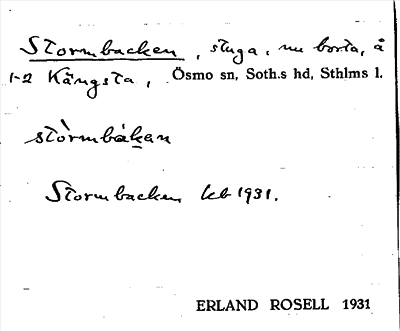 Stormbacken, stuga, nu borta, å
1-2 Kängsta, Ösmo sn, Soth.s hd, Sthlms l.
stòrmbákan
Stormbacken kb 1931.
ERLAND ROSELL 1931